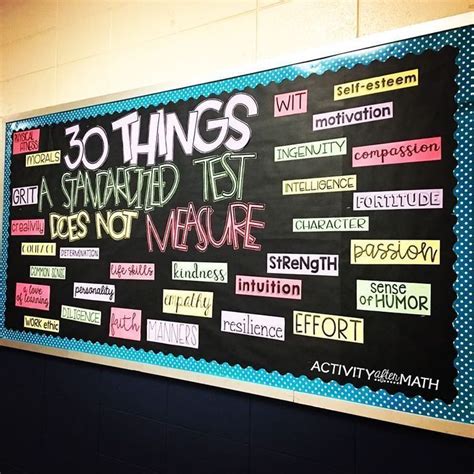 30 THINGS
A STANDARDIZED TEST
DOES NOT MEASURE
PHYSICAL FITNESS
MORALS
GRIT
creativity
COMMON LOGIC
a love of learning
WORK ethic
DETERMINATION
personality
DILIGENCE
life skills
faith
kindness
empathy
MANNERS
resilience
intuition
STRENGTH
EFFORT
WIT
Self-esteem
motivation
INGENUITY
compassion
INTELLIGENCE
FORTITUDE
CHARACTER
passion
sense of HUMOR
ACTIVITY after MATH